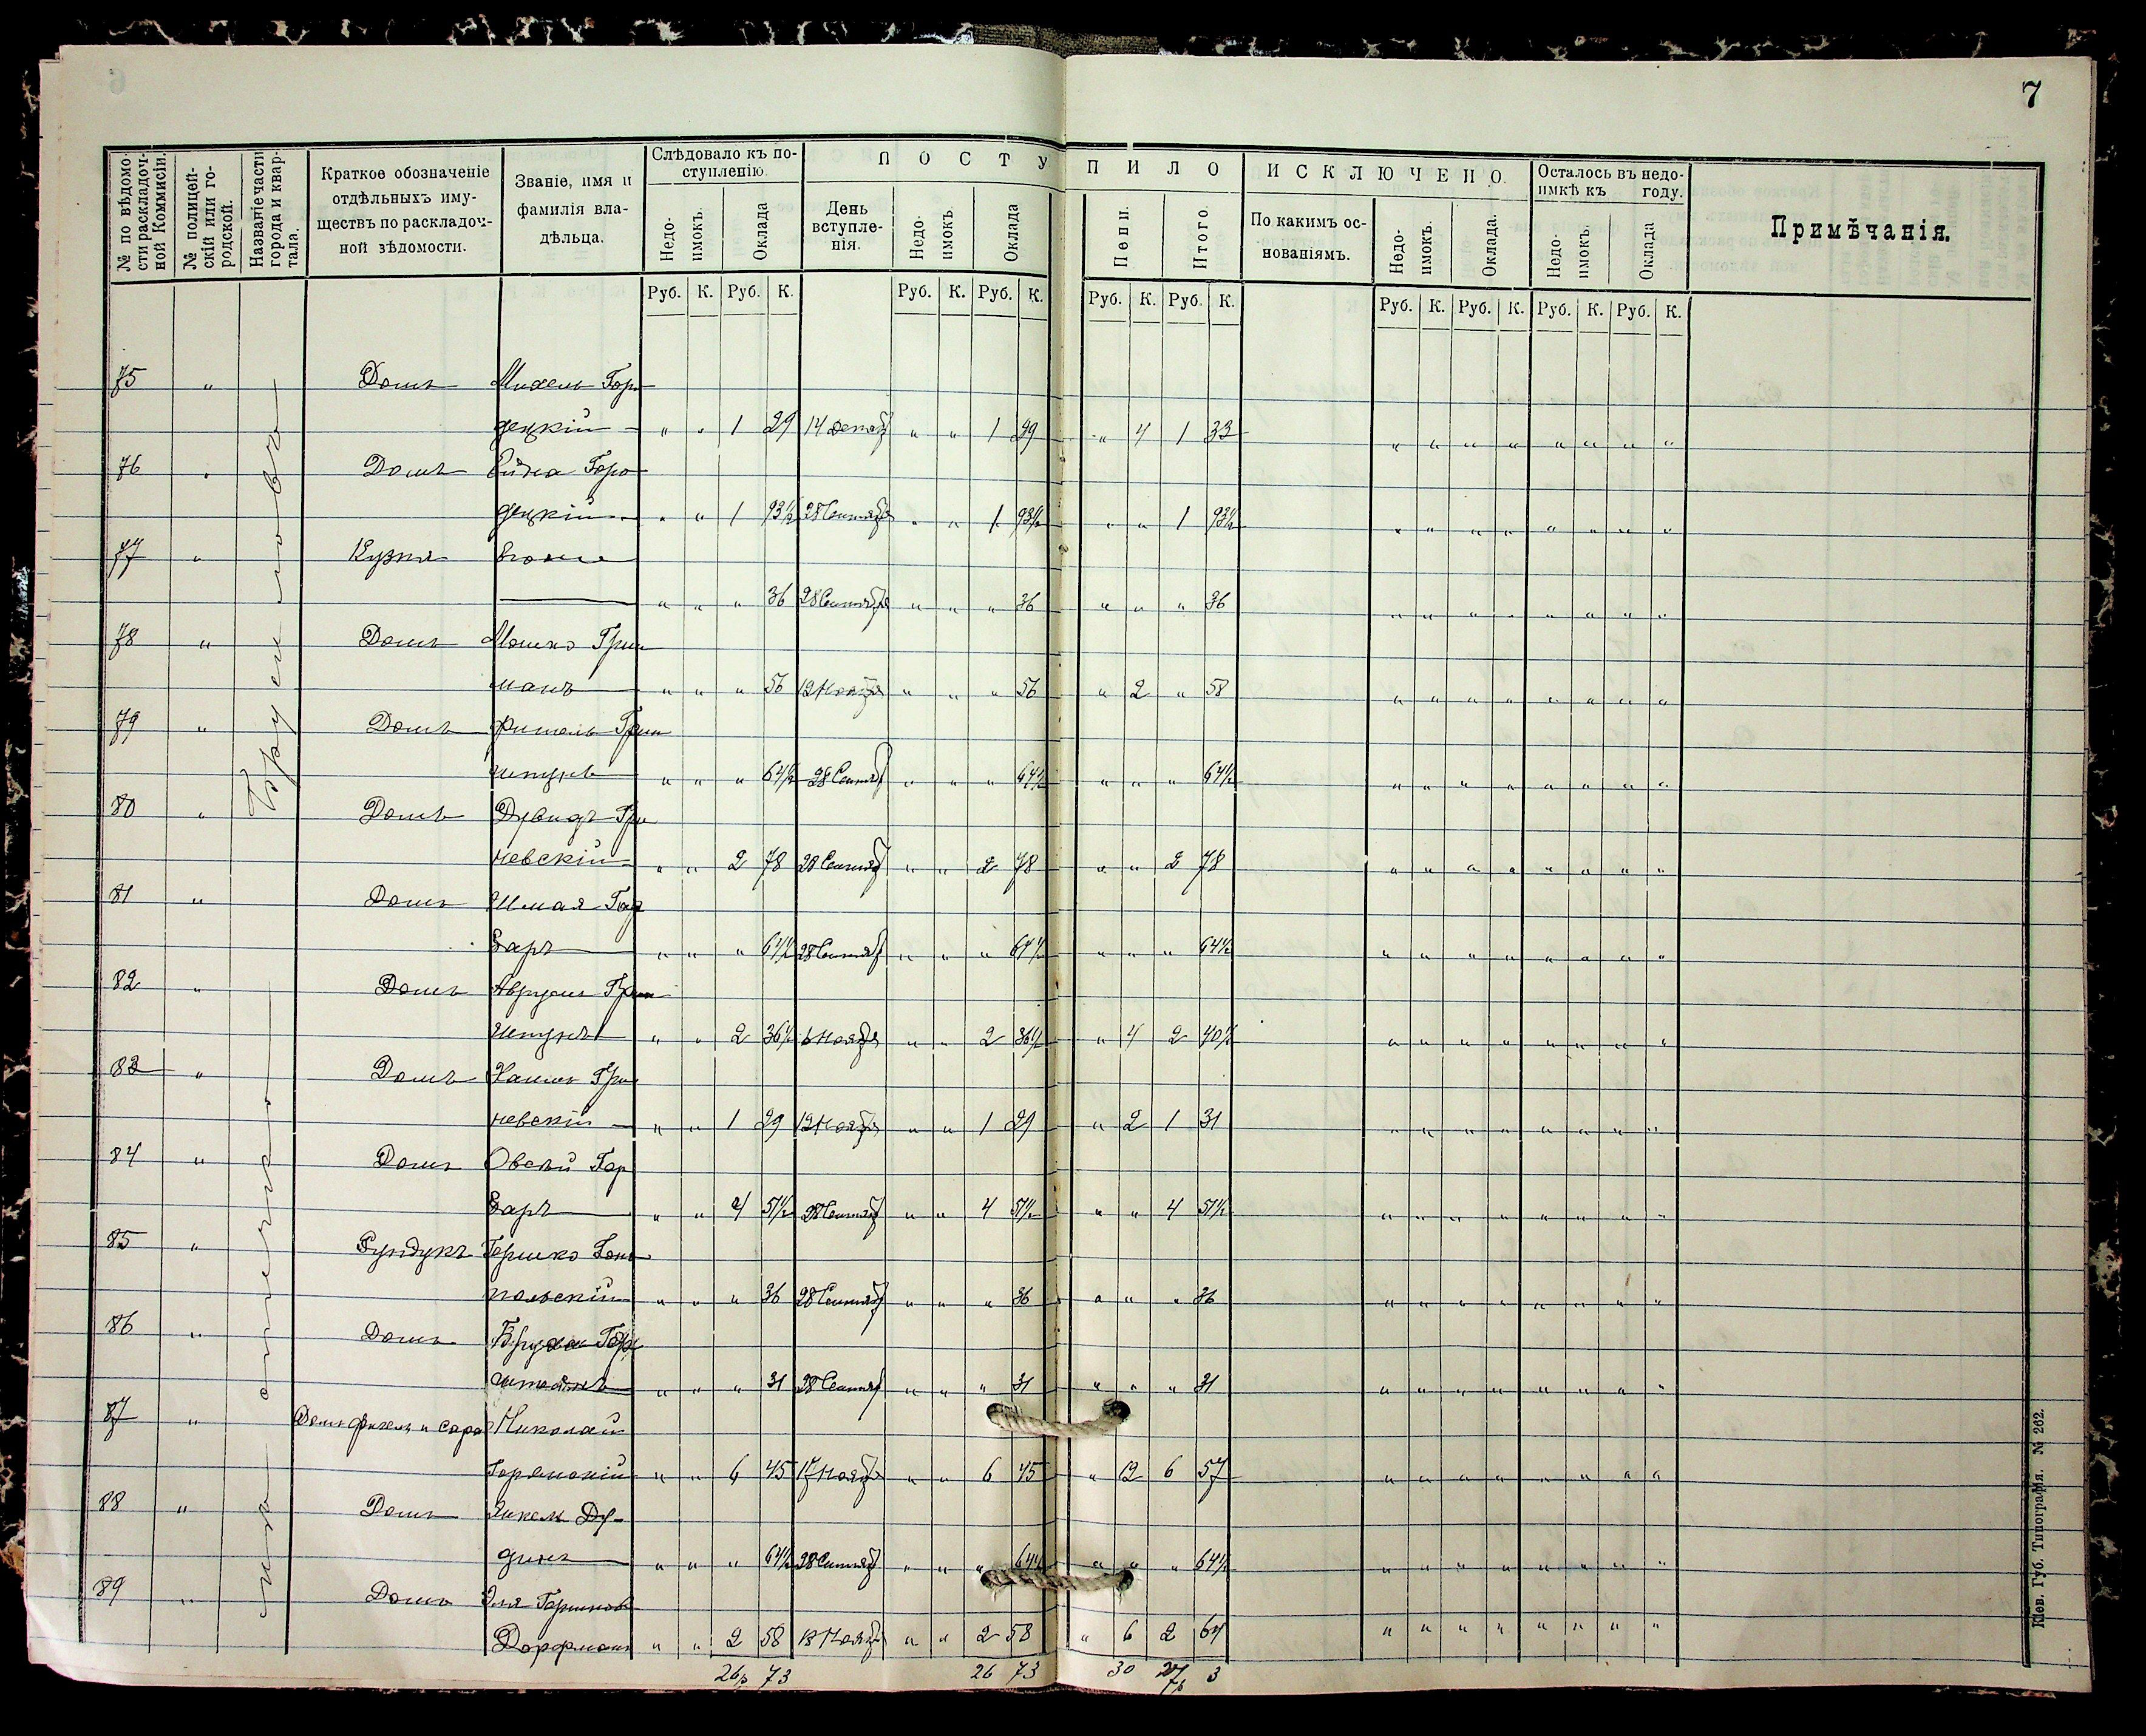 7
№ по вѣдомости раскладочной Коммисіи.
№ полицейскій или городской.
Названіе части города и квартала.
Краткое обозначеніе отдѣльныхъ имуществъ по раскладочной вѣдомости.
Званіе, имя и фамилія владѣльца.
Слѣдовало къ поступленію.
ПОСТУПИЛО
ИСКЛЮЧЕНО.
Осталось въ недоимкѣ къ году.
Примѣчанія.
Недоимокъ. Оклада День вступленія. Недоимокъ. Оклада Пени. Итого. По какимъ основаніямъ. Недоимокъ. Оклада. Недоимокъ. Оклада
Руб. К. Руб. К. Руб. К. Руб. К. Руб. К. Руб. К. Руб. К. Руб. К. Руб. К. Руб. К.
75 " Домъ Михель Горо
децкій " " 1 29 14 " " 1 29 " 4 1 33 " " " " " " " "
76 " Домъ Горо
децкій " " 1 93½ 28 Сентяб " " 1 93½ " " 1 93½ " " " " " " " "
77 " Кузня
" " " 36 28 Сентяб " " " 36 " " " 36 " " " " " " " "
78 " Домъ Мошко Гриц
манъ " " " 56 12 Нояб " " " 56 " 2 " 58 " " " " " " " "
79 " Домъ Фишель Грин
штейнъ " " " 64½ 28 Сентяб " " " 64½ " " " 64½ " " " " " " " "
80 " Домъ Дувидъ Гри
невскій " " 2 78 28 Сентяб " " 2 78 " " 2 78 " " " " " " " "
81 " Домъ Шмая Гор
баръ " " " 64½ 28 Сентяб " " " 64½ " " " 64½ " " " " " " " "
82 " Домъ Аврумъ Грин
штейнъ " " 2 36½ 6 Нояб " " 2 36½ " 4 2 40½ " " " " " " " "
83 " Домъ Гри
невскій " " 1 29 12 Нояб " " 1 29 " 2 1 31 " " " " " " " "
84 " Домъ Овсѣй Гор
баръ " " 4 51½ 28 Сентяб " " 4 51½ " " 4 51½ " " " " " " " "
85 " Рундукъ Гершко
польскій " " " 36 28 Сентяб " " " 36 " " " 36 " " " " " " " "
86 " Домъ Бруха Гор
штейнъ " " " 31 28 Сентяб " " " 31 " " " 31 " " " " " " " "
87 " Домъ и Николай
" " 6 45 17 Нояб " " 6 45 " 12 6 57 " " " " " " " "
88 " Домъ Янкель Ду-
динъ " " " 64½ 28 Сентяб " " " 64½ " " " 64½ " " " " " " " "
89 " Домъ Эля Гершковъ
Дорфманъ " " 2 58 13 Нояб " " 2 58 " 6 2 64 " " " " " " " "
26р 73 26 73 30 27р 3
Кіев. Губ. Типографія. № 262.